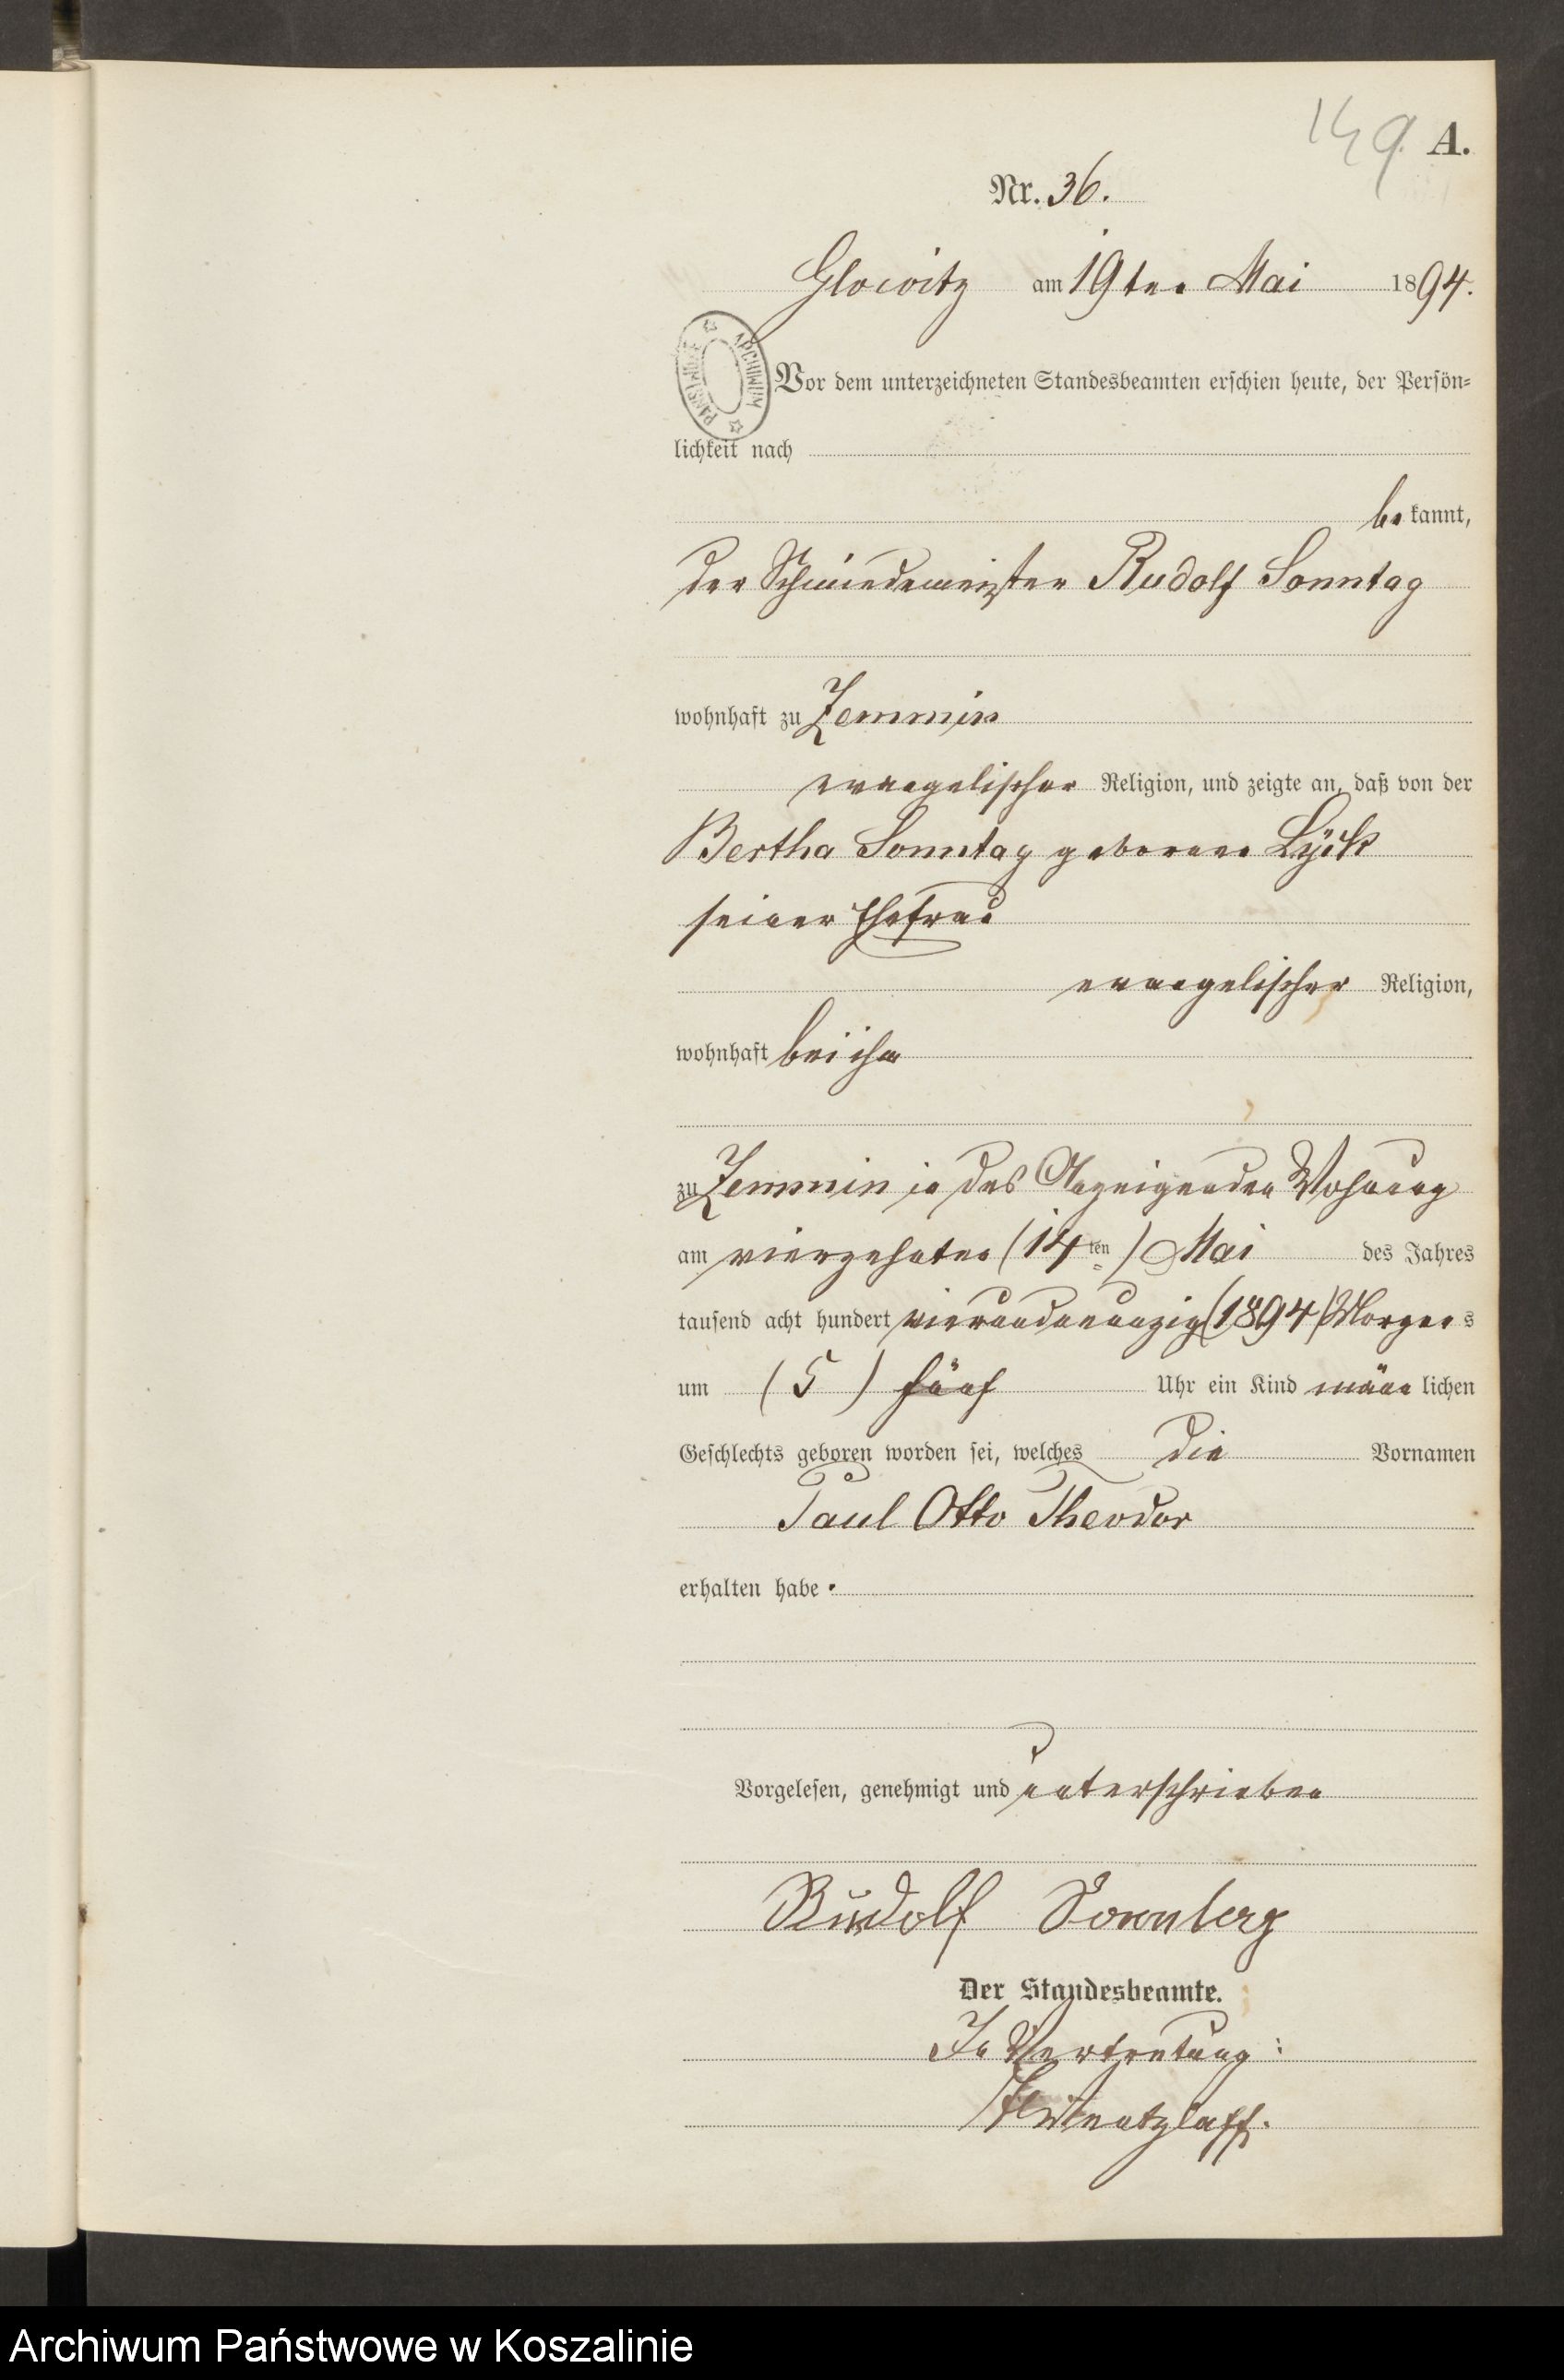 149. A.
Nr. 36.
Glowitz am 19ten Mai 1894.
Vor dem unterzeichneten Standesbeamten erschien heute, der Persön-
lichkeit nach
bekannt,
der Schmiedemeister Rudolf Sonntag
wohnhaft zu Zemmin
evangelischer Religion, und zeigte an, daß von der
Bertha Sonntag geborene Lÿck
seiner Ehefrau
evangelischer Religion,
wohnhaft bei ihm
zu Zemmin in des Anzeigenden Wohnung
am vierzehnten (14ten) Mai des Jahres
tausend acht hundert vierundneunzig (1894) Morgens
um (5) fünf Uhr ein Kind männlichen
Geschlechts geboren worden sei, welches die Vornamen
Paul Otto Theodor
erhalten habe.
Vorgelesen, genehmigt und unterschrieben
Rudolf Sonntag
Der Standesbeamte.
In Vertretung:
ARCHIWUM PAŃSTWOWE
Archiwum Państwowe w Koszalinie